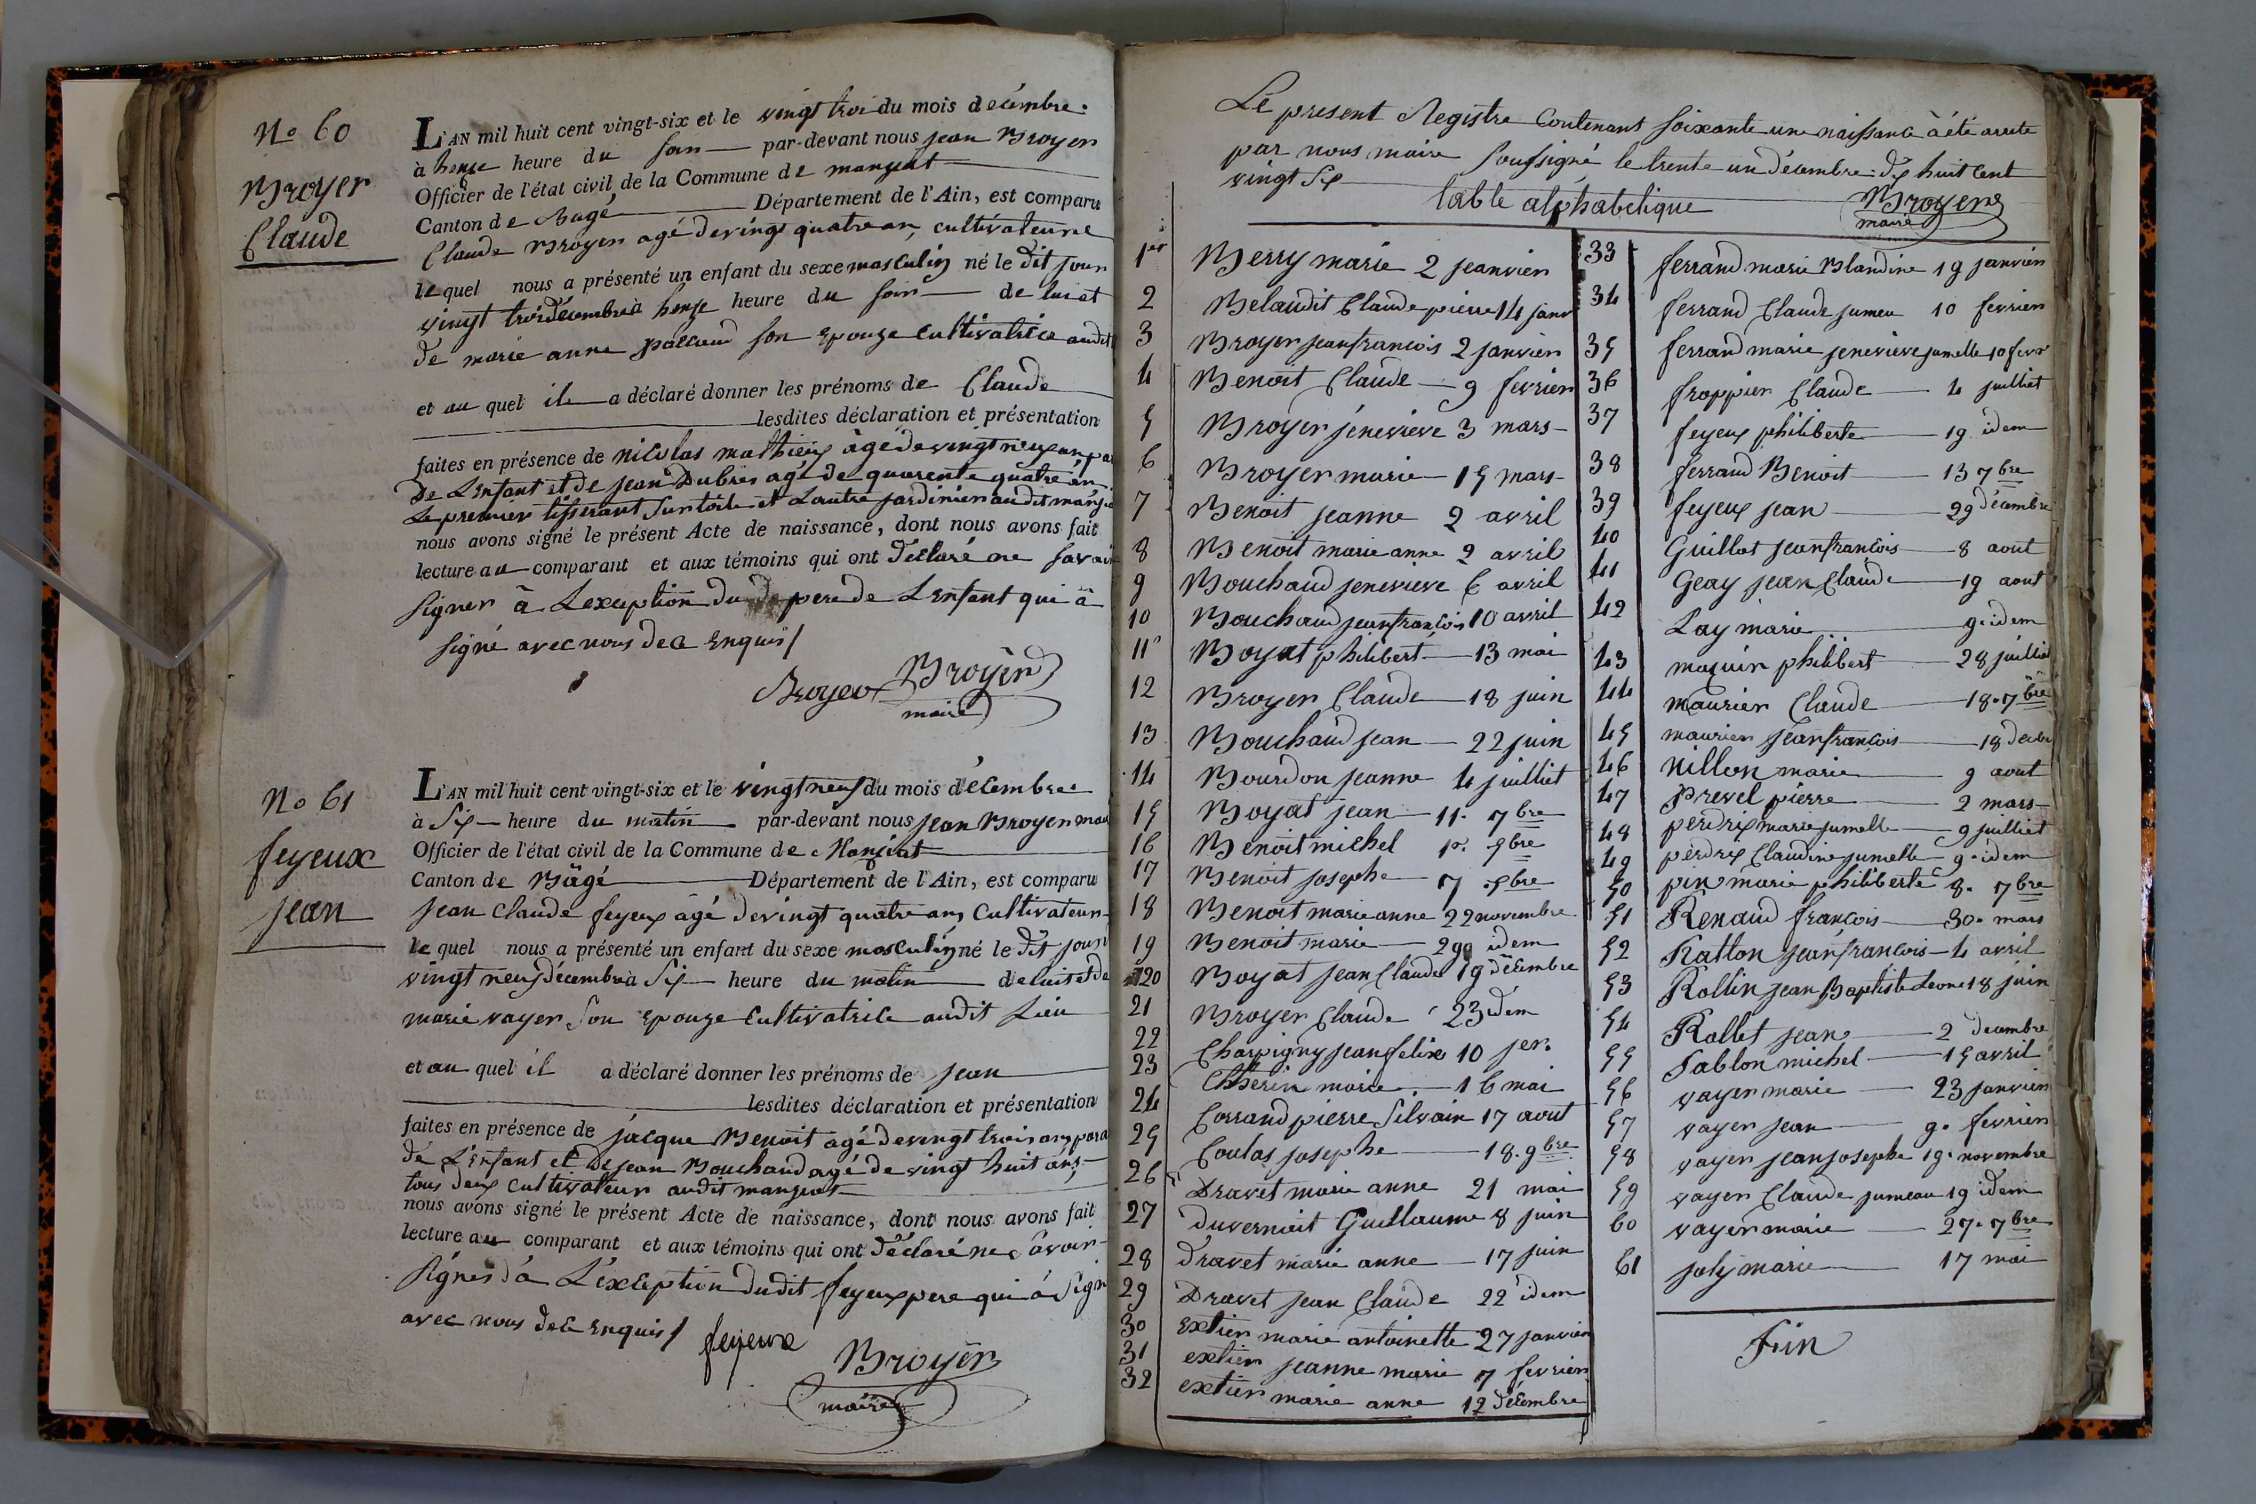 No 60
Broyer
Claude
L'AN mil huit cent vingt-six et le vingt troi du mois decembre
à honze heure du soir par-devant nous jean Broyer
Officier de l'état civil de la Commune de manziat
Canton de Bagé Département de l'Ain, est comparu
Claude Broyer agé de vingt quatre an, cultivateur
lequel nous a présenté un enfant du sexe masculin né le dit jour
vingt troi décembre à honze heure du soir de lui et
de marie anne paccoud son Epouze Cultivatrice audit
et au quel il a déclaré donner les prénoms de Claude
lesdites déclaration et présentation
faites en présence de nicolas mathieux àgé de vingt neuf an
De L'enfant et de jean Dubris agé de quarente quatre an
Le premier tisserant Sur toile et Lautre jardinier audit
nous avons signé le présent Acte de naissance, dont nous avons fait
lecture au comparant et aux témoins qui ont déclaré ne savoir
signer à Lexception du pere de L'enfant qui à
signé avec nous de ce Enquis
Broyer Broyer
maire
No 61
feyeux
jean
L'AN mil huit cent vingt-six et le vingt neuf du mois décembre
à Six heure du matin par-devant nous jean Broyer
Officier de l'état civil de la Commune de Manziat
Canton de Bâgé Département de l'Ain, est comparu
jean Claude feyeux agé de vingt quatre ans Cultivateur
lequel nous a présenté un enfant du sexe masculin né le dit jour
vingt neuf décembre à Six heure du matin de lui et de
marie vayer Son Epouze Cultivatrice audit Lieu
et au quel il a déclaré donner les prénoms de jean
lesdites déclaration et présentation
faites en présence de jacque Benoit agé de vingt trois ans
de L'enfant et de jean Bouchaud agé de vingt huit ans
tous deux cultivateur audit manziat
nous avons signé le présent Acte de naissance, dont nous avons fait
lecture au comparant et aux témoins qui ont déclaré ne savoir
signer à L'exception dudit feyeux pere qui à Signé
avec nous de ce Enquis
feyeux Broyer
maire
Le present Registre Contenant Soixante une naissance à été areté
par nous maire Soussigné le trente un décembre dix huit Cent
vingt Six
table alphabetique Broyer
maire
1er Berry marie 2 jeanvier
2 Belaudit Claude pierre 14 janv
3 Broyer jeanfrancois 2 janvier
4 Benoit Claude 9 fevrier
5 Broyer jénevieve 3 mars
6 Broyer marie 15 mars
7 Benoit jeanne 2 avril
8 Benoit marie anne 2 avril
9 Bouchaud jenevieve 6 avril
10 Bouchaud jeanfrancois 10 avril
11 Boyat philibert 13 mai
12 Broyer Claude 18 juin
13 Bouchaud jean 22 juin
14 Bourdon jeanne 4 juilliet
15 Boyat jean 11. 7bre
16 Benoit michel 1er. 9bre
17 Benoit josephe 7 9bre
18 Benoit marieanne 22 novembre
19 Benoit marie 29 idem
20 Boyat jean Claude 19 décembre
21 Broyer Claude 23 idem
22 Charpigny jean felix 10 jer.
23 Cherin marie 16 mai
24 Corrand pierre Silvain 17 aout
25 Coulas josephe 18. 9bre
26 Dravet marie anne 21 mai
27 duvernait Guillaume 8 juin
28 dravet marie anne 17 juin
29 Dravet jean Claude 22 idem
30 extier marie antoinette 27 janvier
31 extier jeanne marie 7 fevrier
32 extier marie anne 12 décembre
33 ferrand marie Blandine 19 janvier
34 ferrand Claude jumeu 10 fevrier
35 ferrand marie jenevieve jumelle 10 fevr
36 froppier Claude 4 juilliet
37 feyeux philiberte 19 idem
38 ferrand Benoit 13 7bre
39 feyeux jean 29 décembre
40 Guillot jeanfrancois 8 aout
41 Geay jean Claude 19 aout
42 Lay marie 9. idem
43 maguin philibert 28 juilliet
44 maurier Claude 18. 7bre
45 maurier jeanfrançois 18 decbr
46 nillon marie 9 aout
47 prevel pierre 2 mars
48 perdrix marie jumelle 9 juilliet
49 perdrix Claudine jumelle 9. idem
50 pin marie philiberte 8. 7bre
51 Renaud françois 30. mars
52 Ratton jeanfrancois 4 avril
53 Rollin jean Baptiste Leone 18 juin
54 Rollet jean 2 decembre
55 Sablon michel 15 avril
56 vayer marie 23 janvier
57 vayer jean 9. fevrier
58 vayer jean josephe 19. novembre
59 vayer Claude jumeau 19 idem
60 vayer marie 27. 7bre
61 joly marie 17 mai
Fin